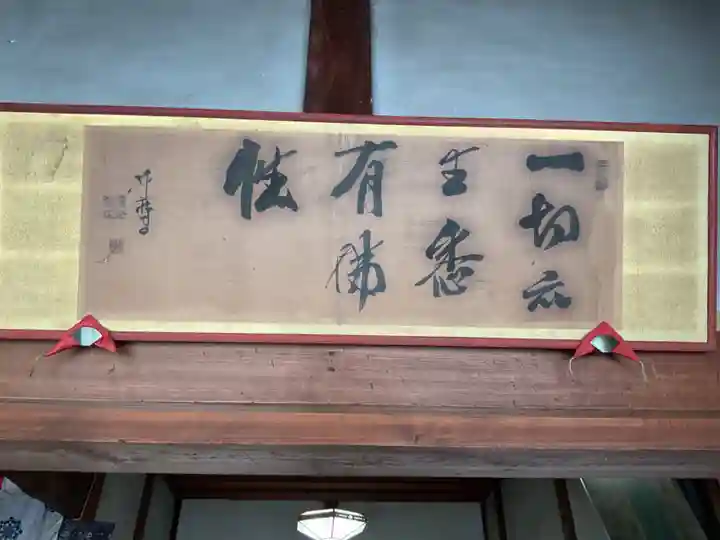 一切衆
生悉
有佛
性